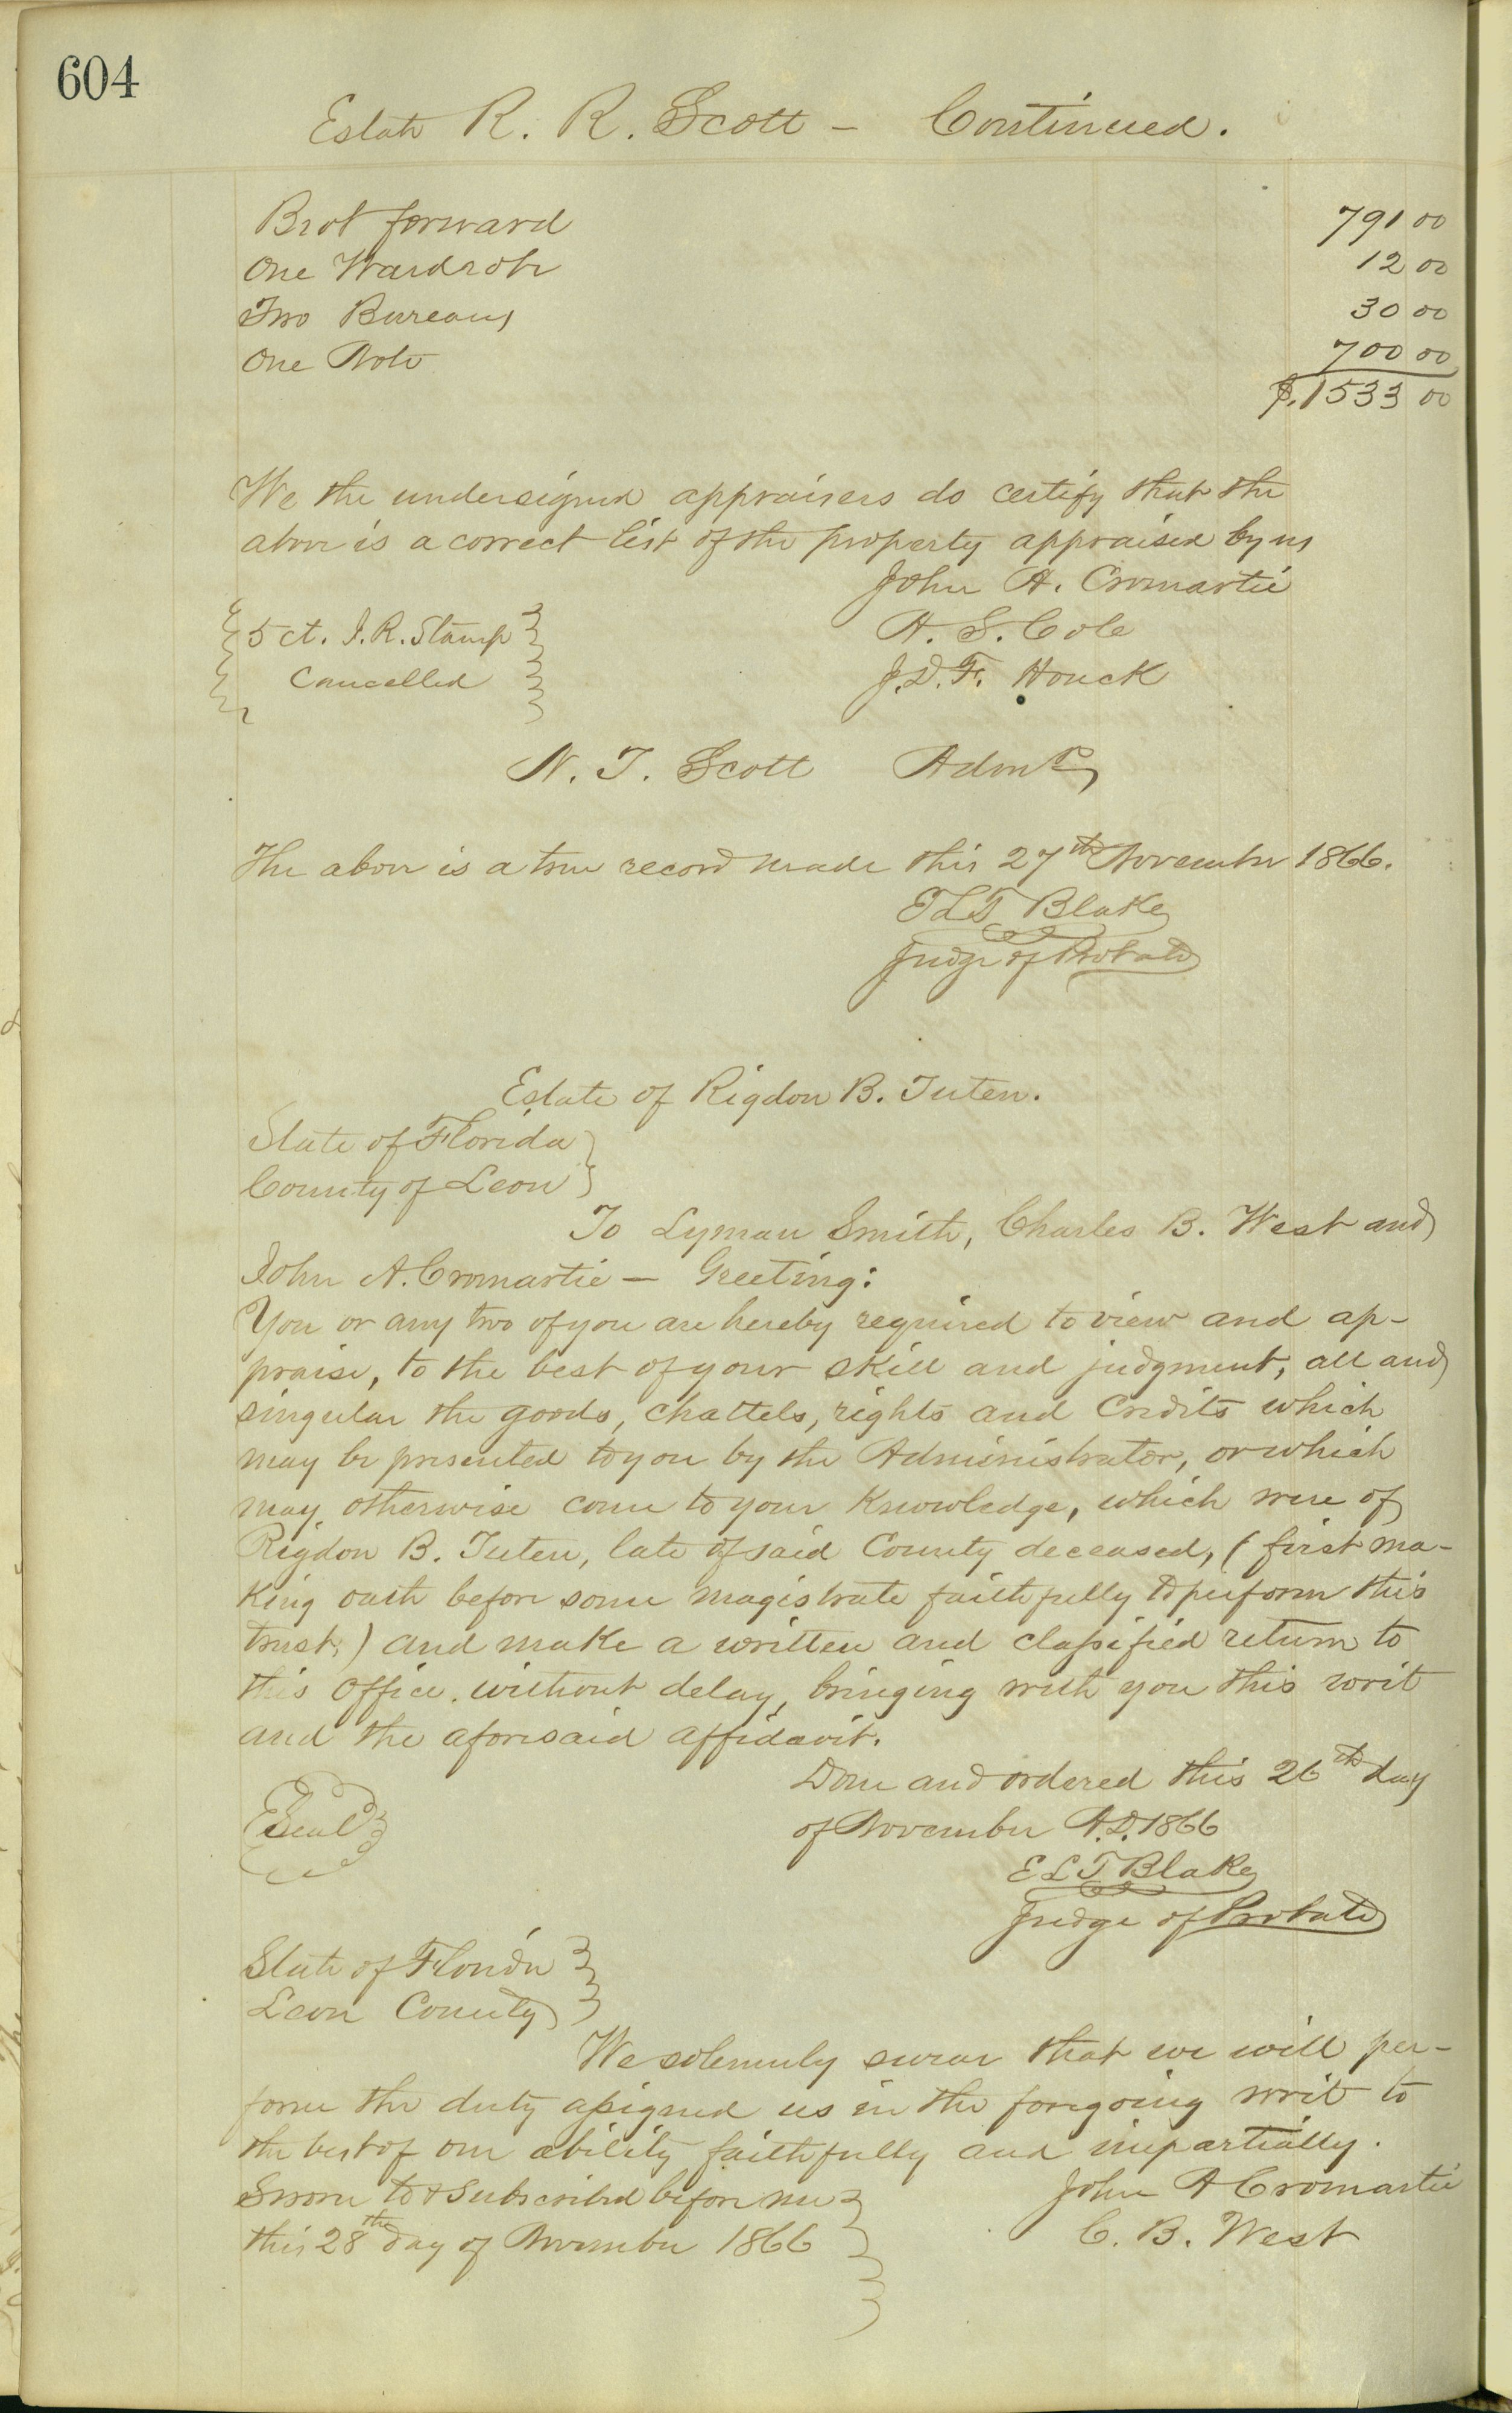 604
Estate R. R. Scott - Continued.
Brot forward 791 00
One Wardrobe 12 00
Two Bureaus 30 00
One Note 700 00
$. 1533 00
We the undersigned appraisers do certify that the
above is a correct list of the property appraised by us
John A. Cromartie
5 ct. I. R. Stamp
Cancelled
A. S. Cole
J. D. F. Houck
N. T. Scott Admr
The above is a true record made this 27th November 1866.
E L T Blake
Judge of Probate
Estate of Rigdon B. Tuten.
State of Florida
County of Leon
To Lyman Smith, Charles B. West and
John A. Cromartie - Greeting:
You or any two of you are hereby required to view and ap-
praise, to the best of your skill and judgment, all and
singular the goods, chattels, rights and Credits which
may be presented to you by the Administrator, or which
may otherwise come to your Knowledge, which were of
Rigdon B. Tuten, late of said County deceased, (first ma-
king oath before some magistrate faithfully to perform this
trust,) and make a written and classified return to
this office. without delay, bringing with you this writ
and the aforesaid affidavit.
Done and ordered this 26th day
of November A.D. 1866
Seal
E L T Blake
Judge of Probate
State of Florida
Leon County
We solemnly swear that we will per-
form the duty assigned us in the foregoing writ to
the best of our ability faithfully and impartially.
Sworn to & Subscribed before me
this 28th day of November 1866
John A Cromartie
C. B. West